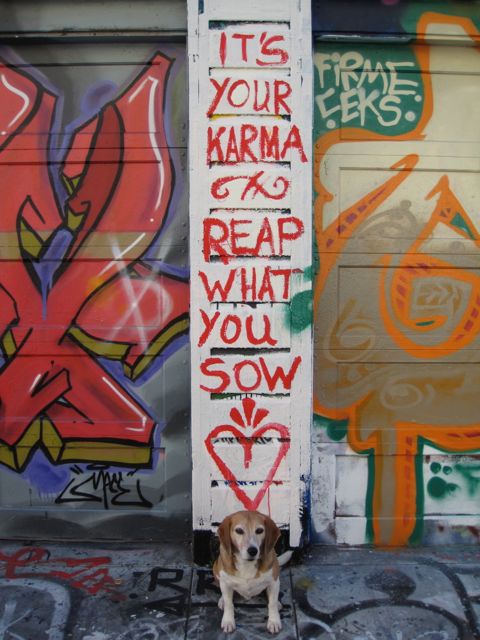 IT'S
YOUR
KARMA
REAP
WHAT
YOU
SOW
FiRME